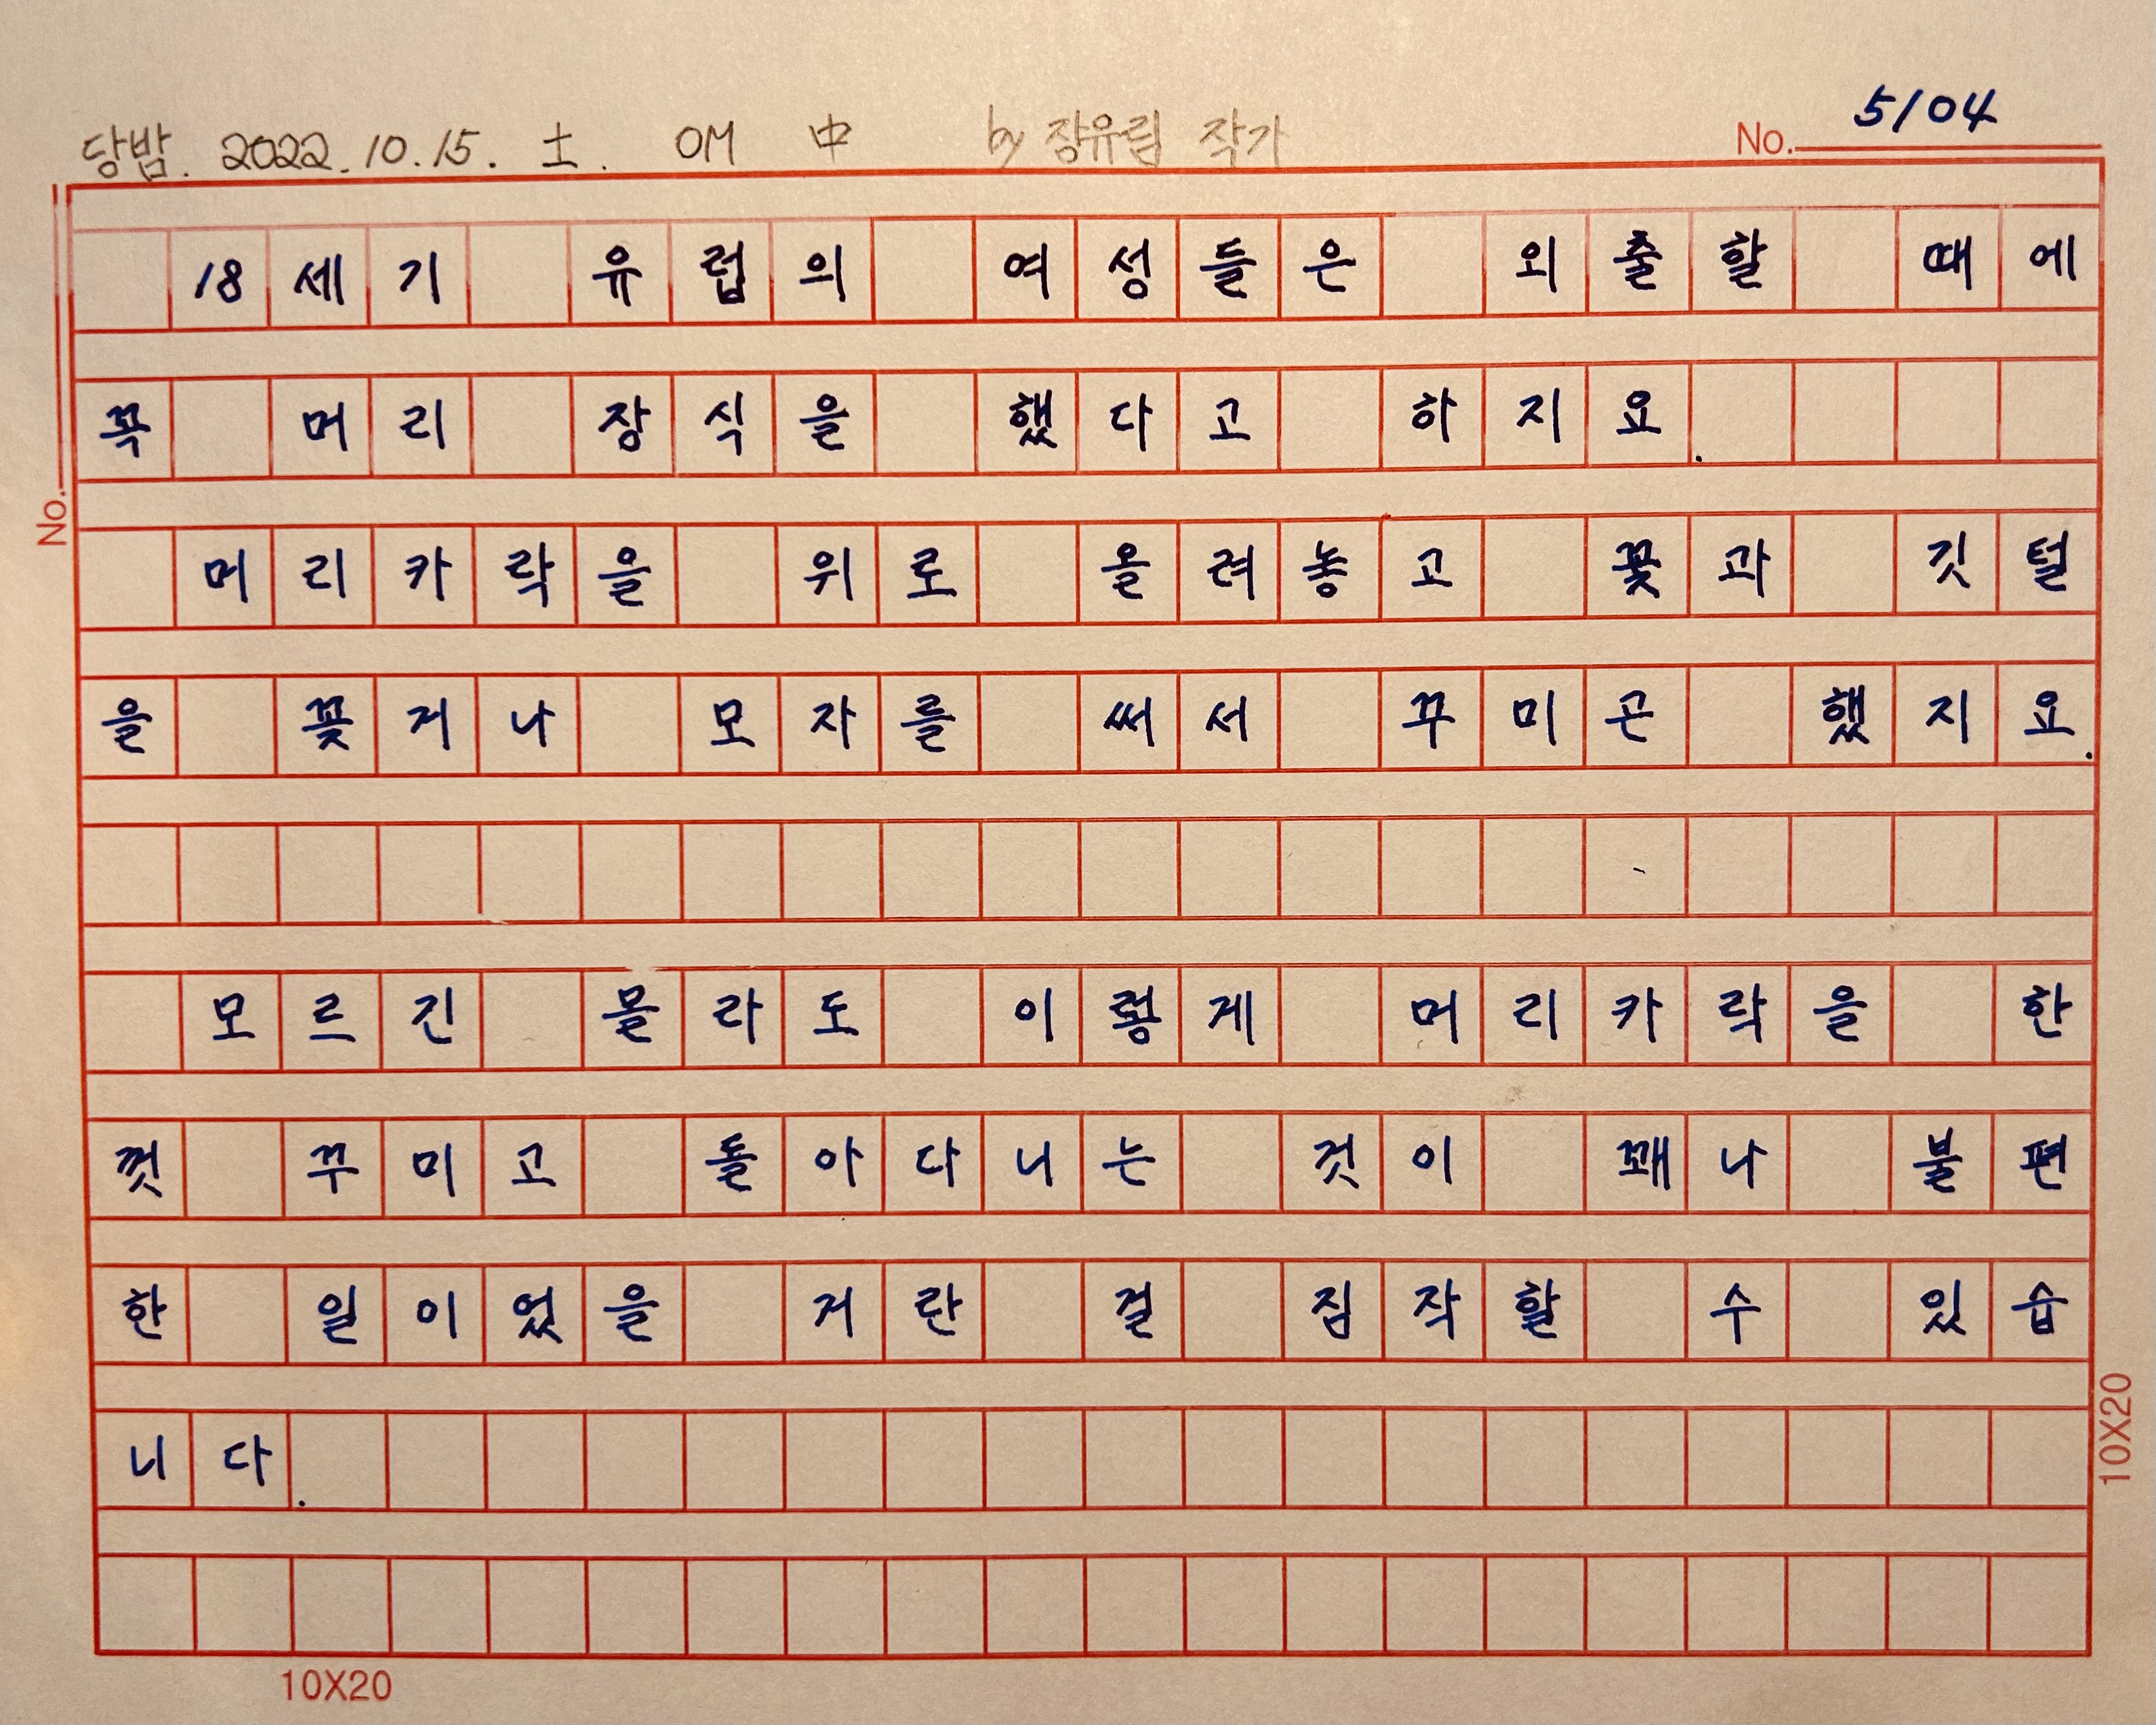 당밤. 2022.10.15. 土. OM 中 by 장유림 작가
No. 5104
18세기 유럽의 여성들은 외출할 때에
꼭 머리 장식을 했다고 하지요.
머리카락을 위로 올려놓고 꽃과 깃털
을 꽂거나 모자를 써서 꾸미곤 했지요.
모르긴 몰라도 이렇게 머리카락을 한
껏 꾸미고 돌아다니는 것이 꽤나 불편
한 일이었을 거란 걸 짐작할 수 있습
니다.
No.
10X20
10X20